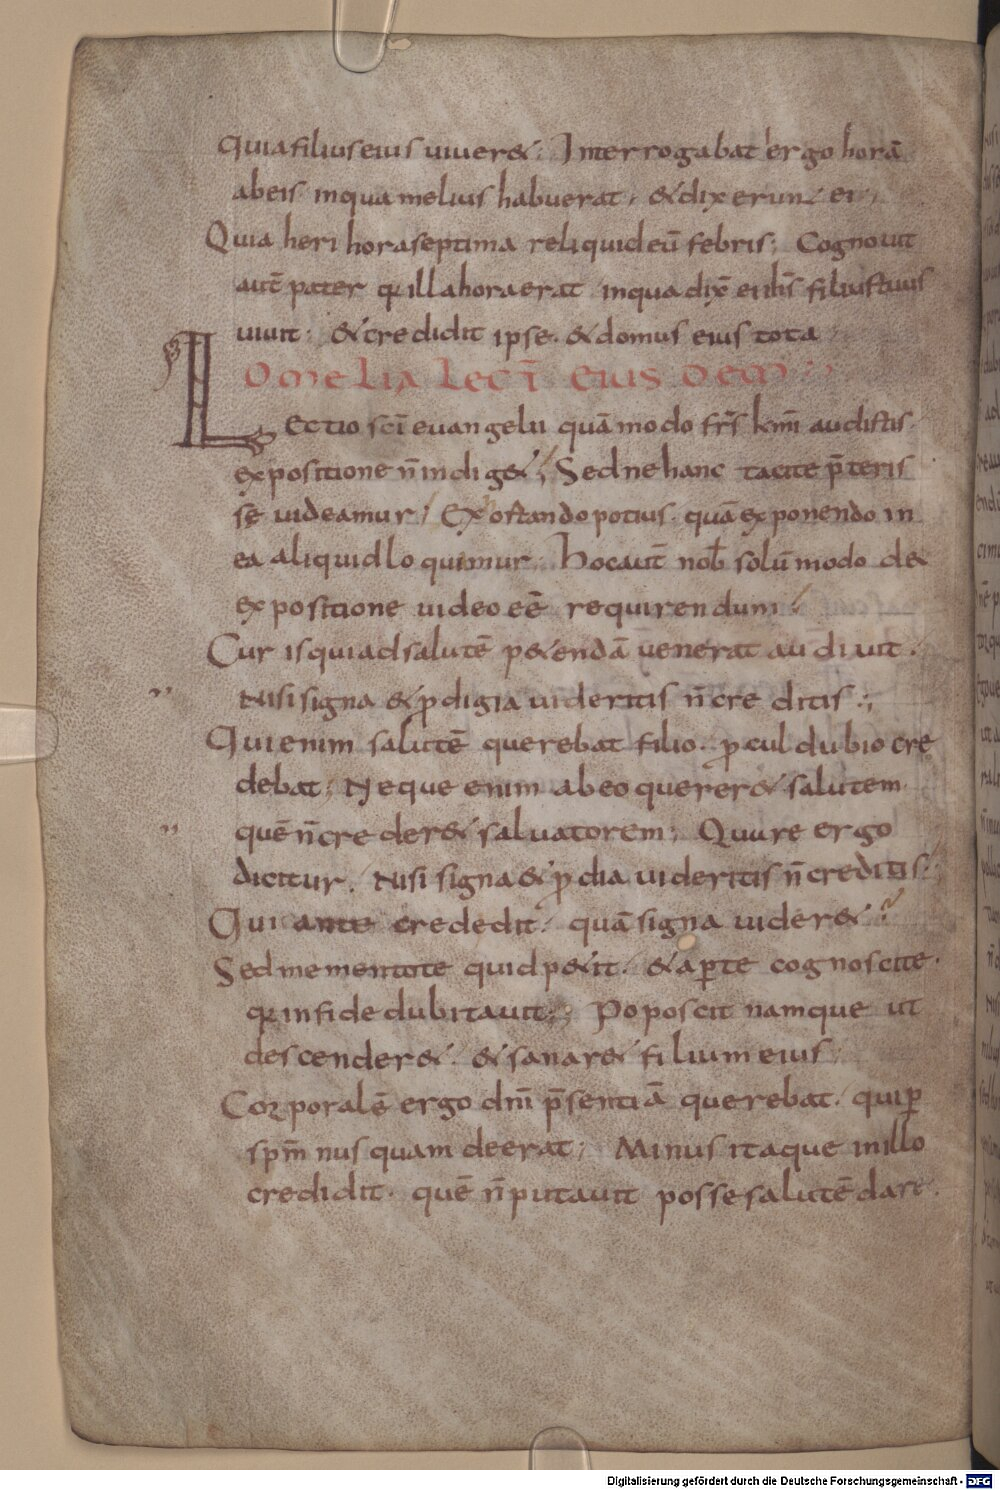 quia filius eius uiuer&. Interrogabat ergo horā
ab eis in qua melius habuerat, & dixerunt ei,
Quia heri hora septima reliquid eū febris; Cognouit
autē pater qr illa hora erat in qua dix̄ ei ih̄s filius tuus
uiuit; & credidit ipse. & domus eius tota
Omelia lect̄ eius dem;
Lectio sc̄i euangelii quā modo fr̄s km̄i audistis.
expositione n̄ indig&; Sed ne hanc tacite p̄teris
se uideamur; Exortando potius quā exponendo in
ea aliquid loquimur; Hoc aut̄ nob̄ solūmodo de
expositione uideo eē requirendum;
Cur is qui ad salutē p&endā uenerat audiuit.
Nisi signa & prodigia uideritis n̄ creditis;
Qui enim salutē querebat filio. procul dubio cre
debat; Neque enim ab eo querer& salutem
quē n̄ creder& saluatorem; Quure ergo
dicitur. Nisi signa & prodia uideritis n̄ creditis;
Qui ante crededit. quā signa uider&?
Sed mementote quid p&iit. & aperte cognoscite.
qr in fide dubitauit; Poposcit namque ut
descender&. & sanar& filium eius;
Corporalē ergo dn̄i p̄sentiā querebat. qui per
spm̄ nusquam deerat; Minus itaque in illo
credidit. quē n̄ putauit posse salutē dare.
Digitalisierung gefördert durch die Deutsche Forschungsgemeinschaft - DFG